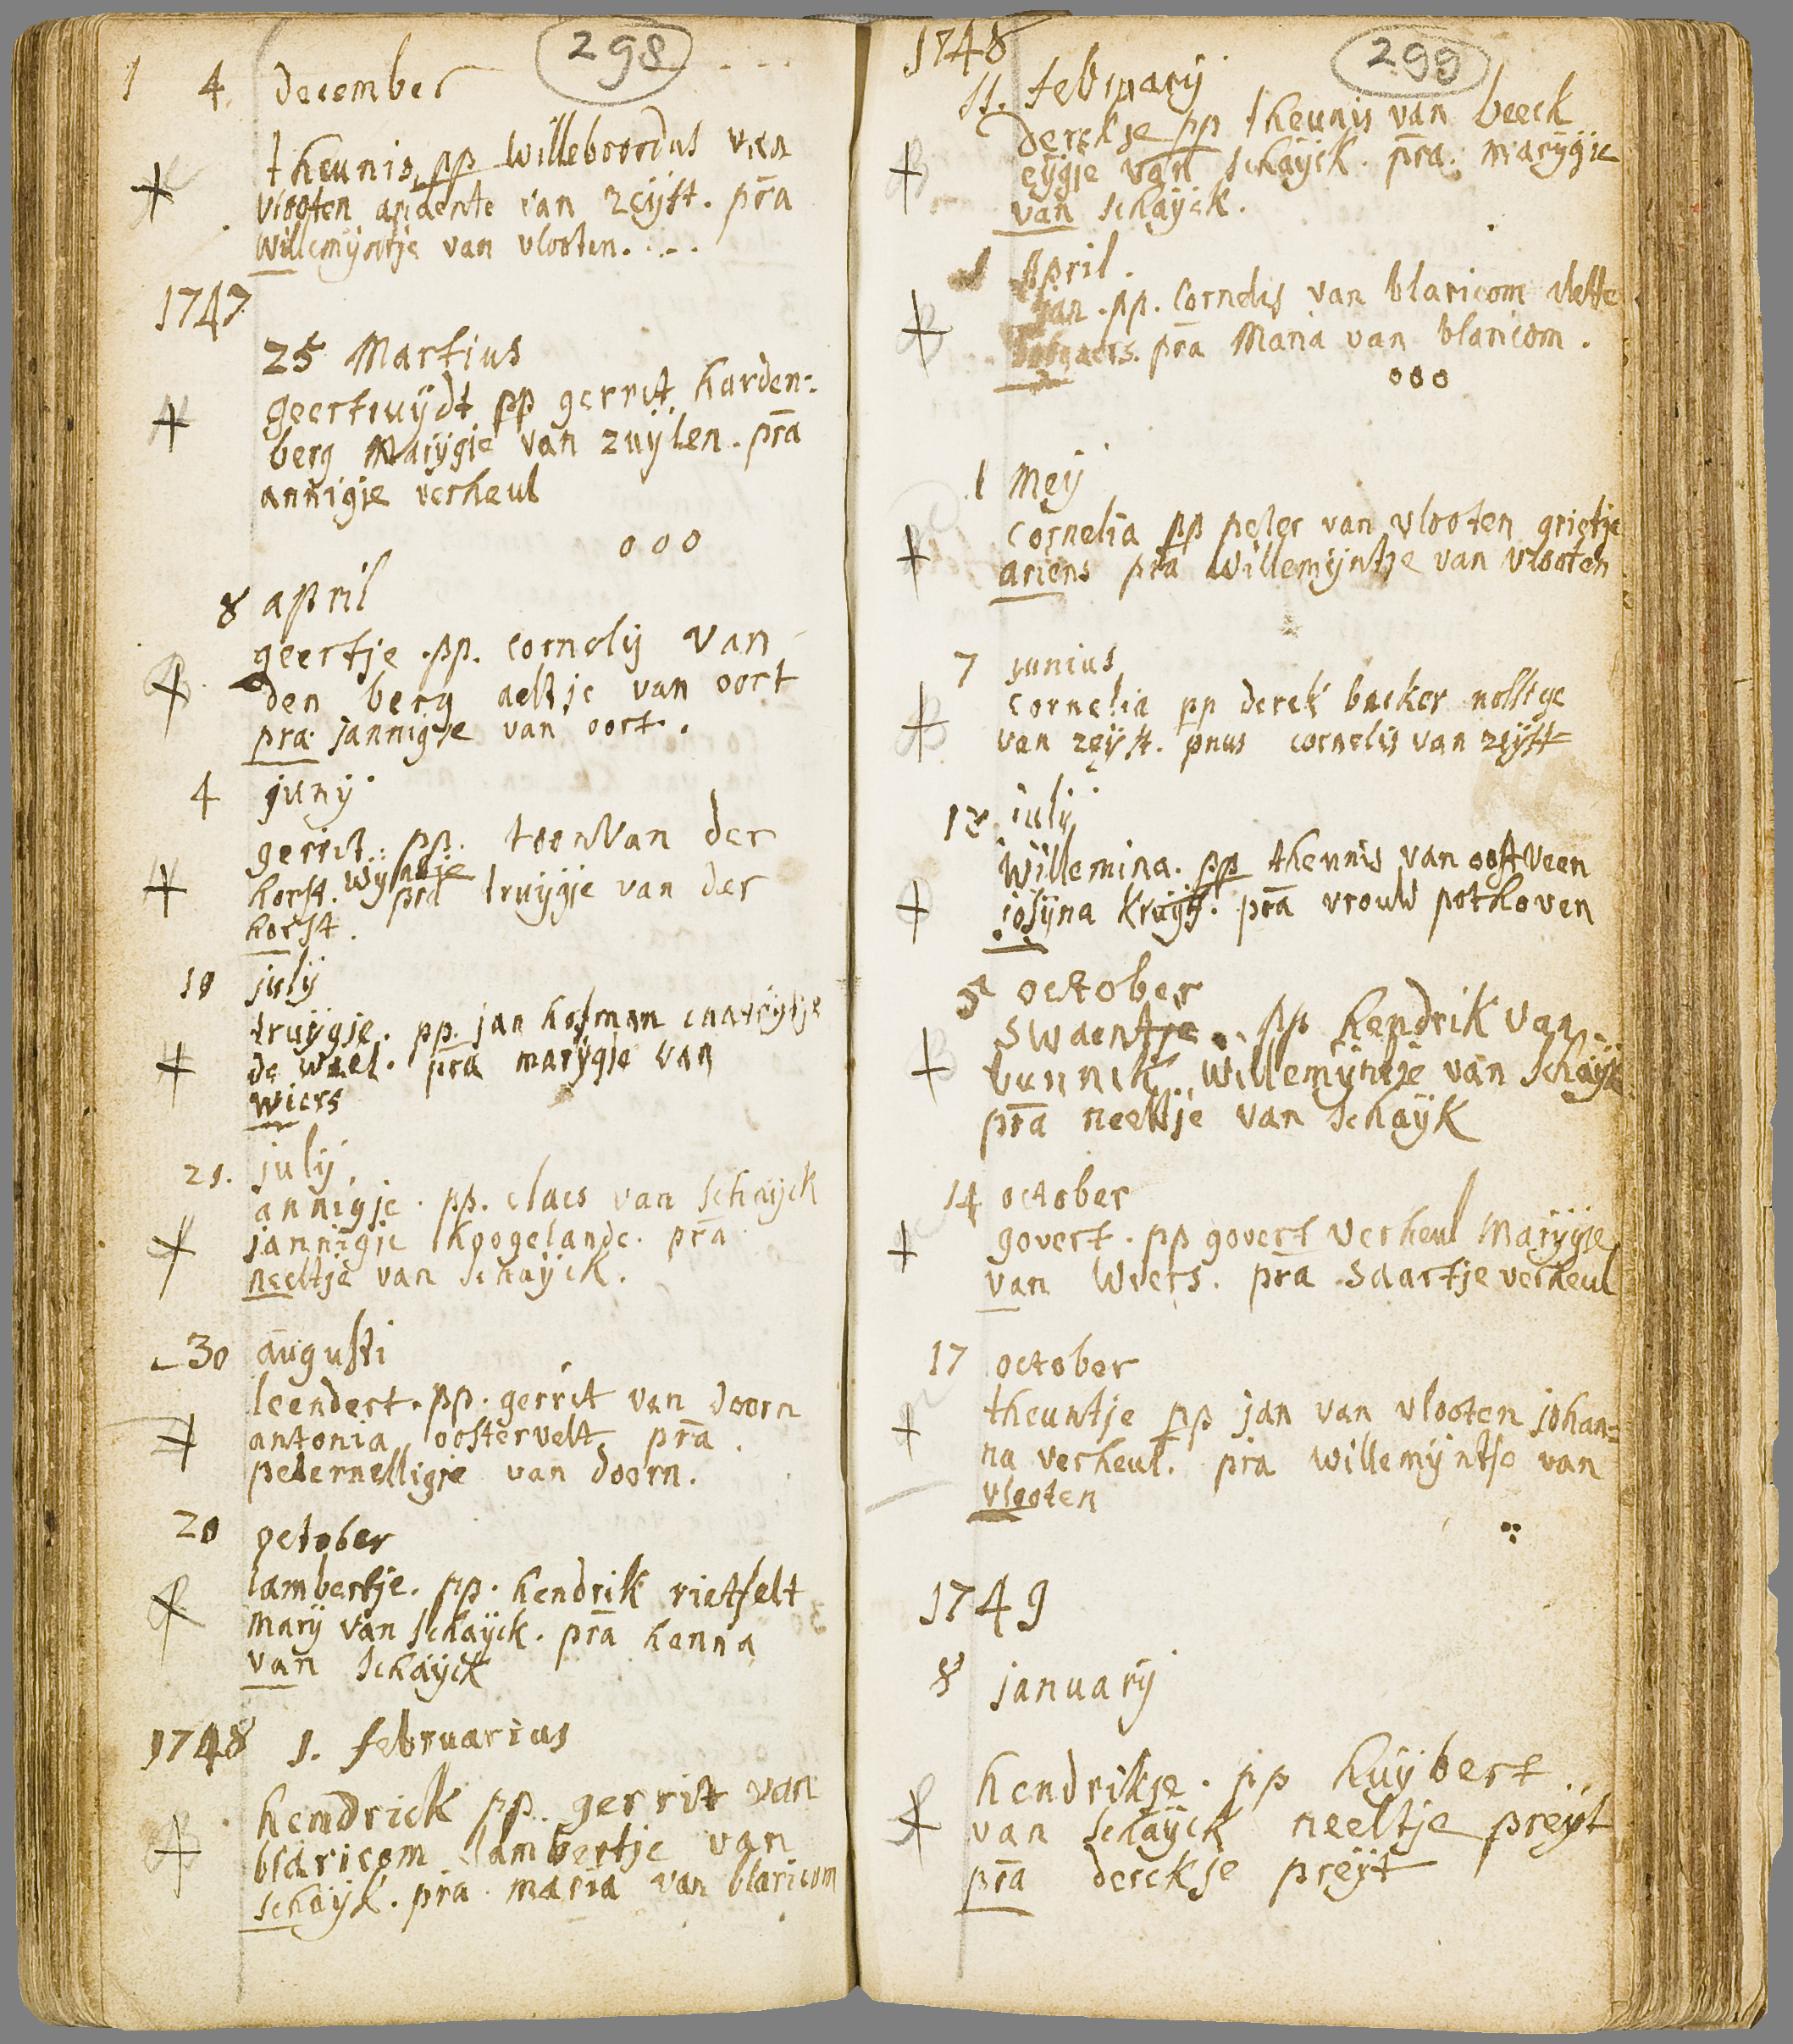 298
1 4 december
theunis, pp Willeboordus van
vlooten ariaente van zeijst. pra
Willemijntje van vlooten.
1747
25 Martius
geertruijdt pp gerrit harden=
berg Marijgje van zuijlen. pra
annigje verheul
000
8 april
geertje. pp. cornelij van
den berg aeltje van oort
pra. jannigje van oort.
4 junij
gerrit. pp. toon van der
horst. wijntje pra truijgje van der
horst.
10 julij
truijgje. pp. jan hofman catrijtje
de weel. pra marijgje van
wiers
21. julij
annigje. pp. claes van schaijck
jannigje hoogelande. pra
neeltje van schaijck.
30 augusti
leendert. pp. gerrit van doorn
antonia oostervelt pra.
peternelligje van doorn.
20 october
lambertje. pp. hendrik rietfelt
Marij van schaijck. pra henna
van schaijck
1748 1. februarius
hendrick pp. gerrit van
blaricom lambertje van
schaijk. pra. maria van blaricom
299
1748
11. februarij
derckje pp theunis van beeck
eijgje van schaijck. pra. marijgje
van schaijck.
1 April.
jan. pp. Cornelis van blaricom
pra Maria van blaricom.
000
1 Meij
Cornelia pp peter van vlooten grietje
ariens pra Willemijntje van vlooten
7 junius
cornelia pp derck backer
van zeijst. pnus cornelis van zeijst
julij
Willemina. pp theunis van oostveen
josijna Kruijf. pra vrouw pothoven
5 october
Swaentje. pp hendrik van
bunnik Willemijntje van schaijk
pra neeltje van schaijk
14 october
govert. pp govert verheul Marijgje
van Wiers. pra Saartje verheul
17 october
theuntje pp jan van vlooten johan=
na verheul. pra willemijntje van
vlooten
1749
8 januarij
hendrikje. pp huijbert
van schaijck neeltje preijt
pra derckje preijt